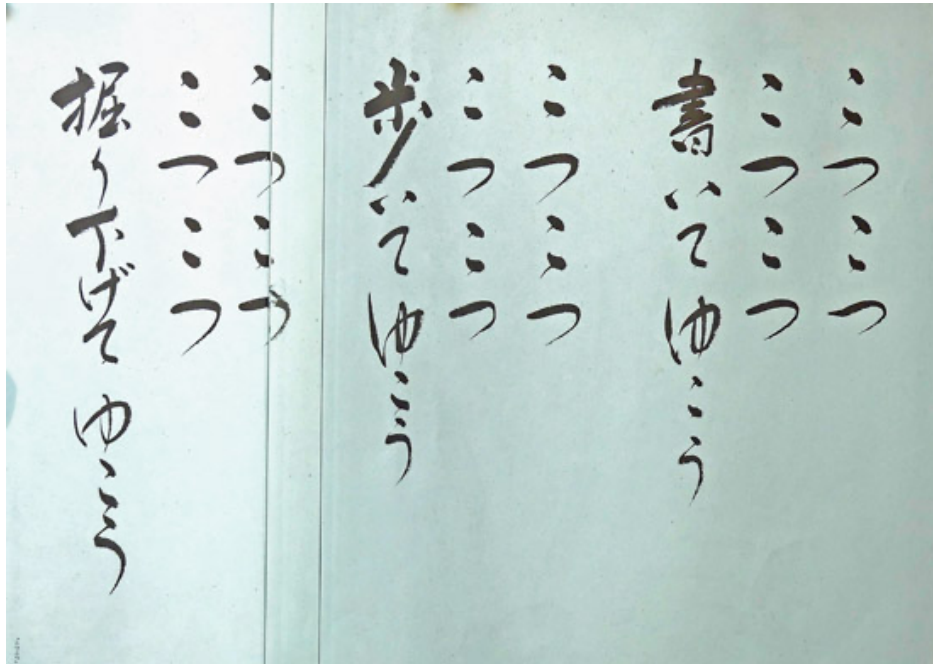 こつこつ
こつこつ
書いてゆこう
こつこつ
こつこつ
歩いてゆこう
こつこつ
こつこつ
掘り下げてゆこう